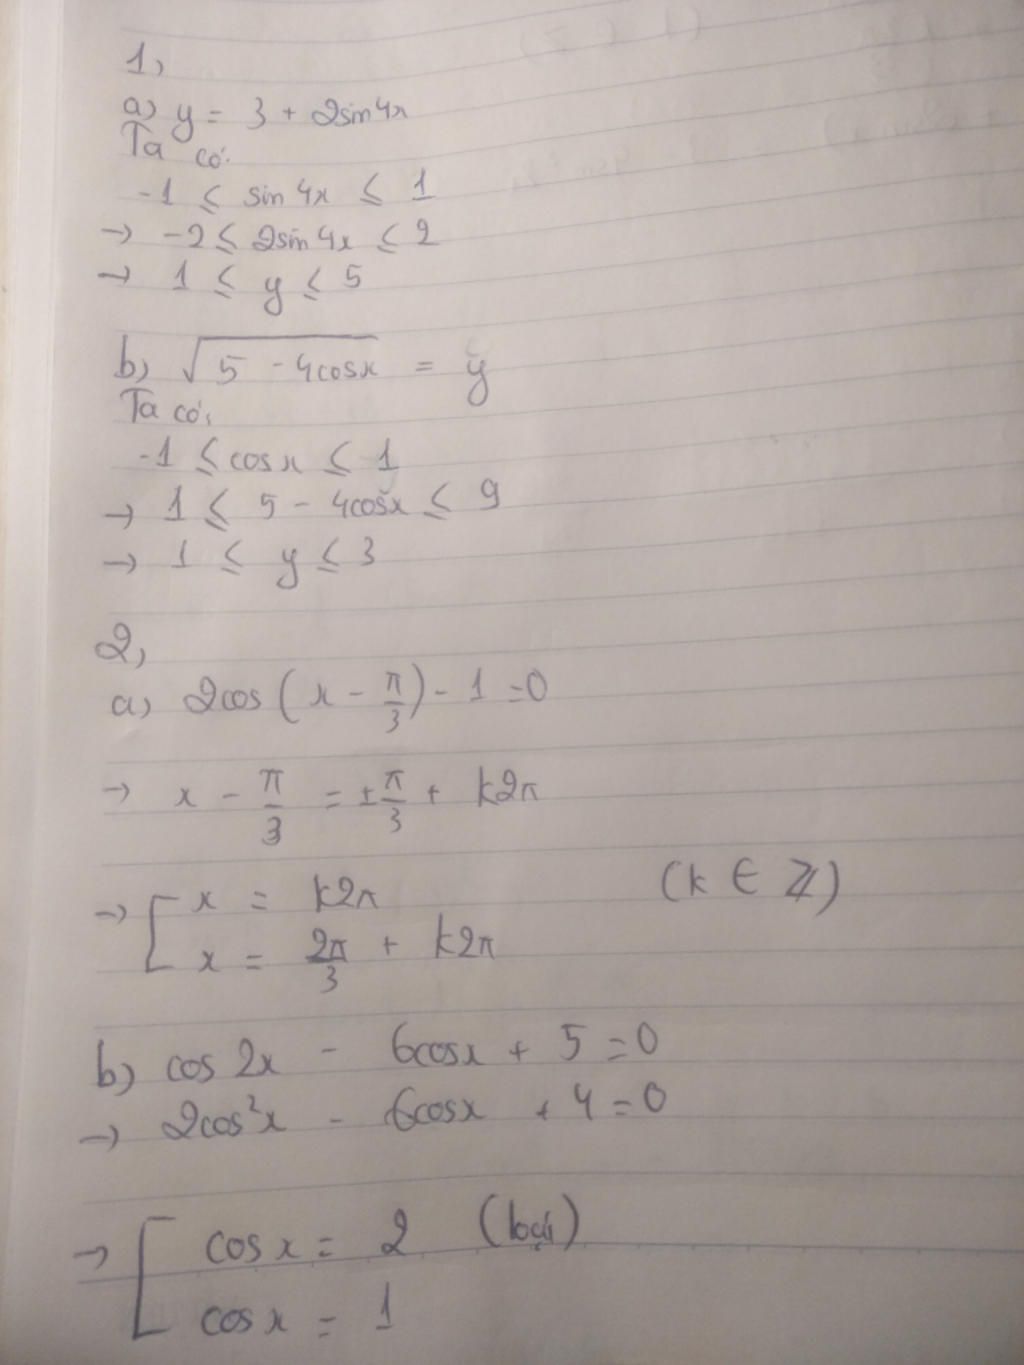 1,
a) y = 3 + 2sin4x
Ta có:
-1 ≤ sin4x ≤ 1
→ -2 ≤ 2sin4x ≤ 2
→ 1 ≤ y ≤ 5
b) √(5 - 4cosx) = y
Ta có:
-1 ≤ cosx ≤ 1
→ 1 ≤ 5 - 4cosx ≤ 9
→ 1 ≤ y ≤ 3
2,
a) 2cos(x - π/3) - 1 = 0
→ x - π/3 = ±π/3 + k2π
→ [ x = k2π (k ∈ ℤ)
x = 2π/3 + k2π
b) cos2x - 6cosx + 5 = 0
→ 2cos²x - 6cosx + 4 = 0
→ [ cosx = 2 (loại)
cosx = 1